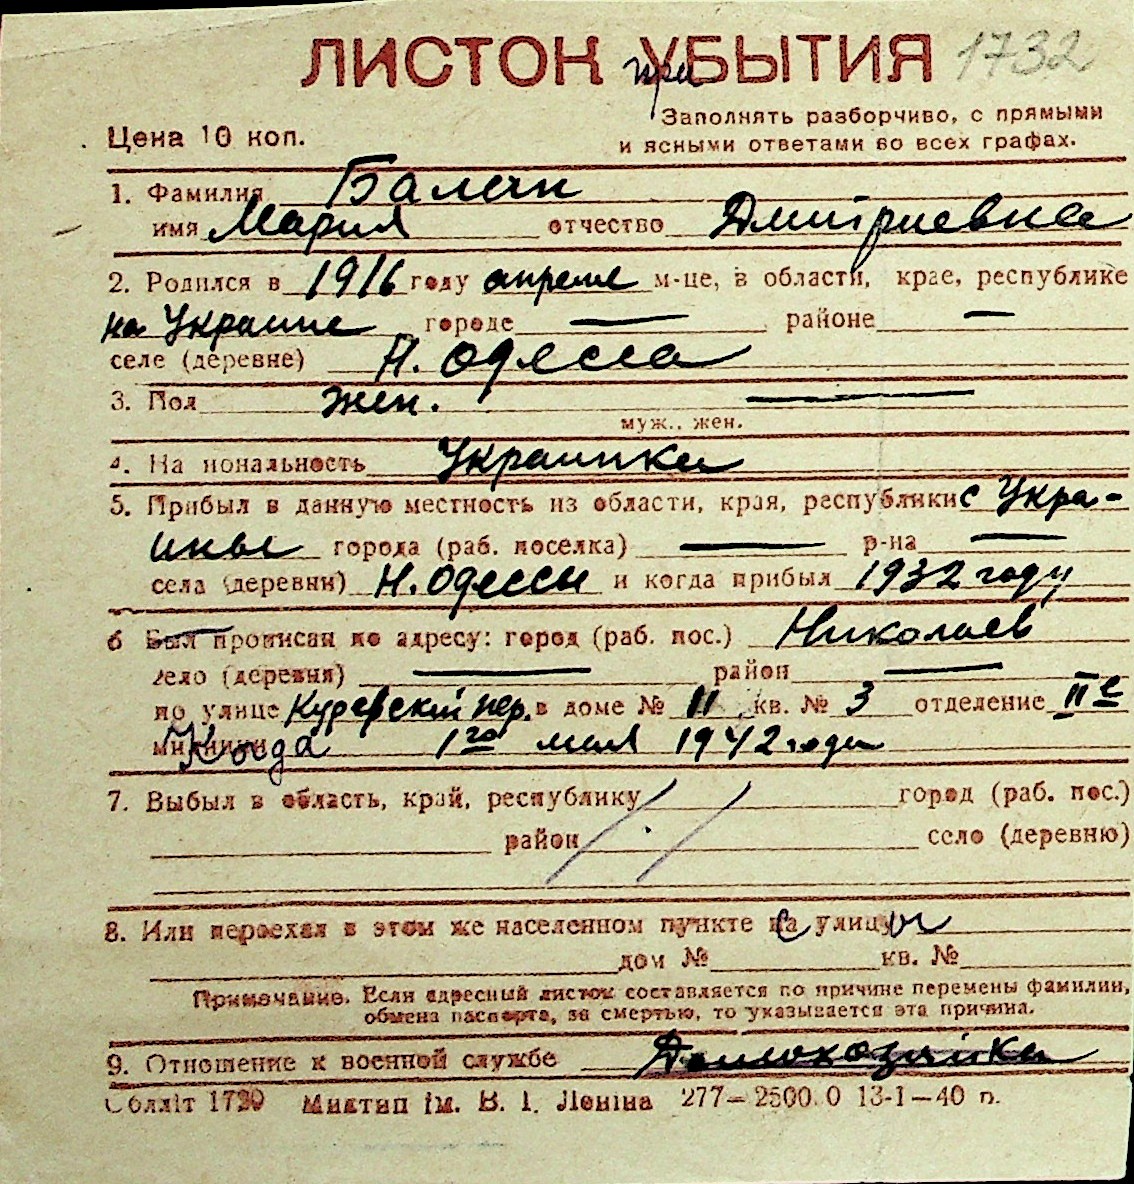 ЛИСТОК УБЫТИЯ 1732
при
Цена 10 коп.
Заполнять разборчиво, с прямыми
и ясными ответами во всех графах.
1. Фамилия
имя Мария отчество Дмитриевна
2. Родился в 1916 году апреля м-це, в области, крае, республике
на Украине городе — районе —
селе (деревне) Н. Одесса
3. Пол жен. —
муж., жен.
4. На иональность Украинка
5. Прибыл в данную местность из области, края, республики с Укра-
ины города (раб. поселка) — р-на —
села (деревни) Н. Одессы и когда прибыл 1932 году
6 Был прописан по адресу: город (раб. пос.) Николаев
село (деревня) — район —
по улице пер. в доме № 11 кв. № 3 отделение II е
милиции Когда 1го мая 1942 года
7. Выбыл в область, край, республику город (раб. пос.)
район село (деревню)
8. Или переехал в этом же населенном пункте на с улицу ы
дом № кв. №
Примечание. Если адресный листок составляется по причине перемены фамилии,
обмена паспорта, за смертью, то указывается эта причина.
9. Отношение к военной службе Домохозяйка
Обллiт 1730 Миктип iм. В. I. Ленiна 277—2500.0 13-1—40 п.